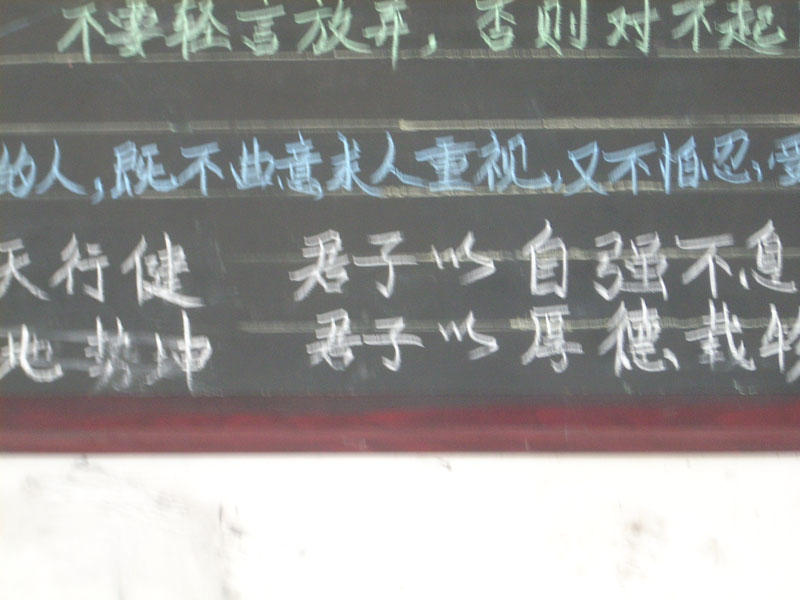 不要轻言放弃，否则对不起
的人，既不曲意求人重视，又不怕忍受
天行健 君子以自强不息
地势坤 君子以厚德载物